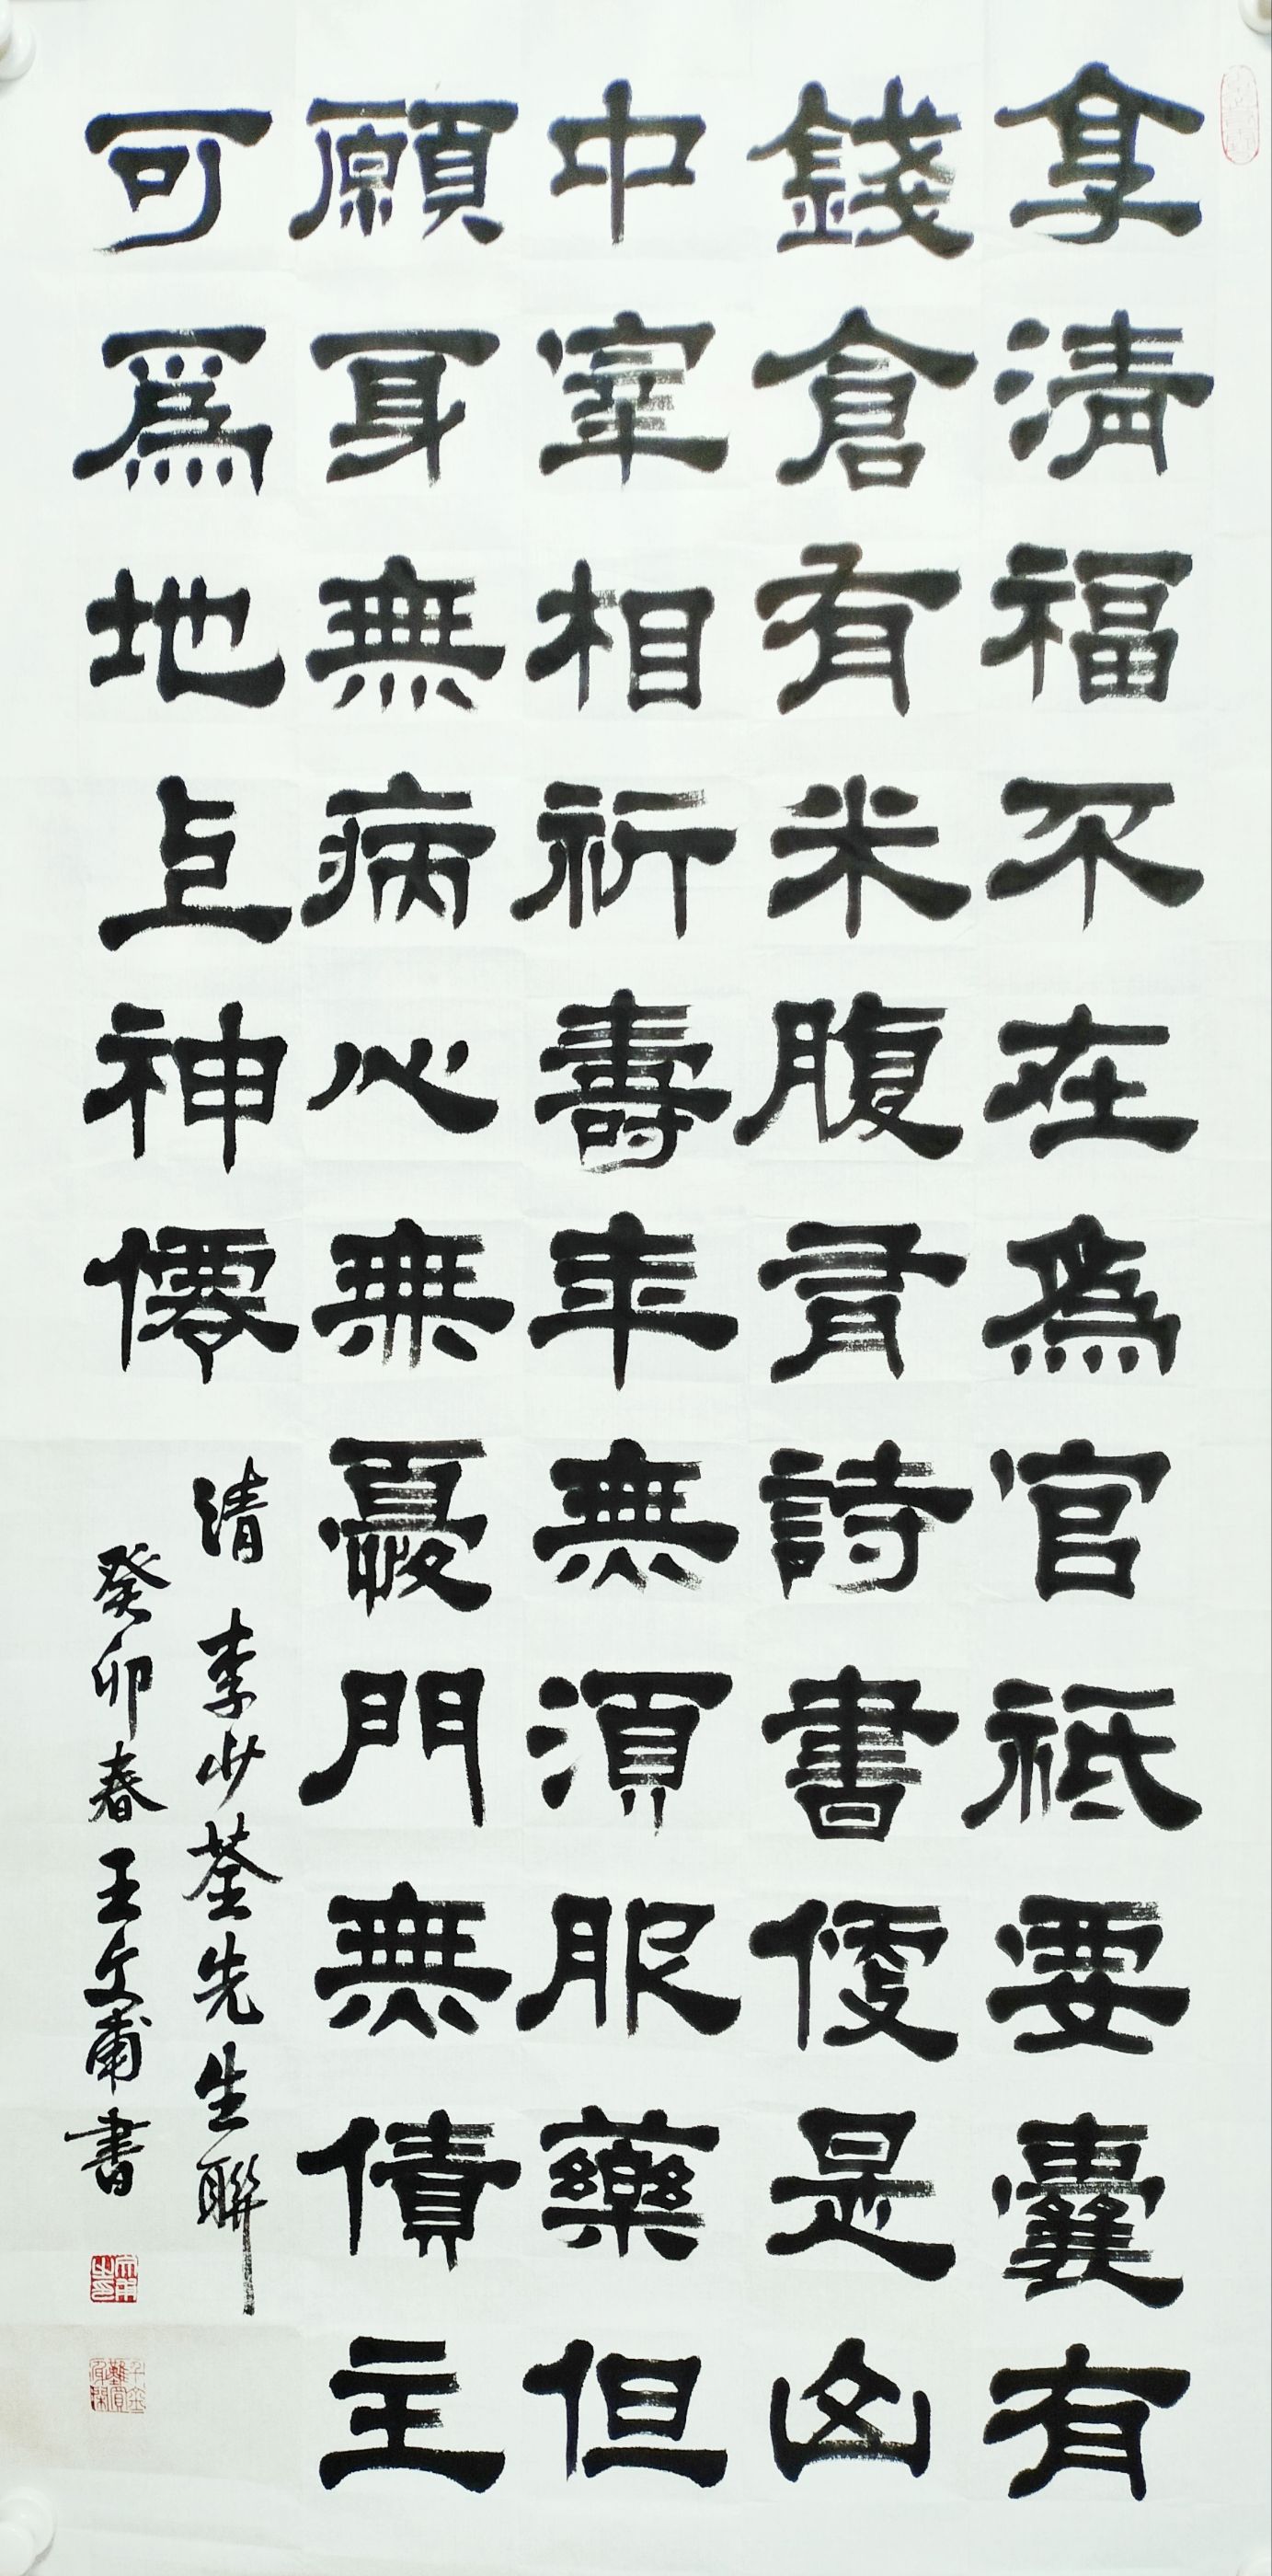 享清福不在為官祇要囊有
錢倉有米腹有詩書便是山
中宰相祈壽年無須服藥但
願身無病心無憂門無債主
可為地上神僊
清 李少荃先生聯
癸卯春王文甫書